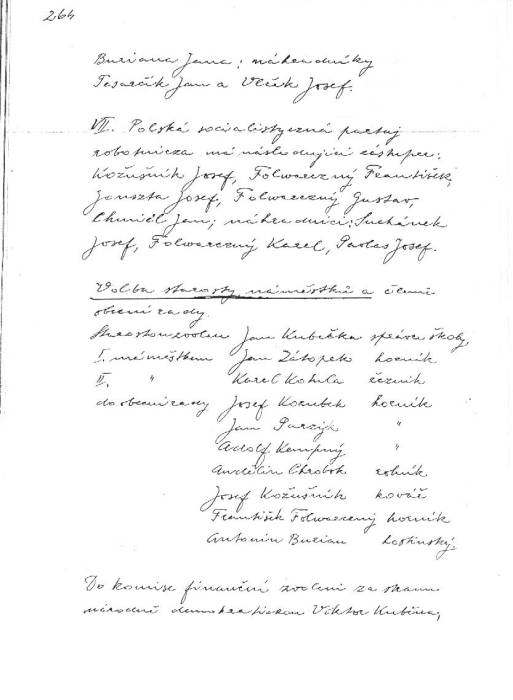 264
Buriana Jana; náhradníky
Tesarčík Jan a Vlček Josef.
VII. Polská socialistyczná partyj
robotnicza má následující zástupce:
Kožušník Josef, Folwarczný František,
Josef, Folwarczný Gustav,
Chmiel Jan; náhradníci: Suchánek
Josef, Folwarczný Karel, Pavlas Josef.
Volba starosty, náměstků a členů
obecní rady.
Starostou zvolen Jan Kubička správce školy,
I. náměstkem Jan Zátopek horník
II. " Karel Kohula řezník
do obecní rady Josef Kozubek horník
Jan "
Adolf Kempný "
Chrobok rolník
Josef Kožušník kovář
František Folwarczný horník
Antonín Burian hostinský.
Do komise finanční zvoleni za stranu
národně demokratickou Viktor Kuběna,